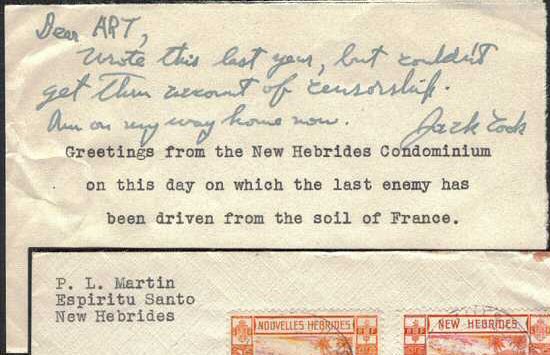 Dear ART,
Wrote this last year, but couldn't
get thru account of censorship.
Am on my way home now. Jack Cock
Greetings from the New Hebrides Condominium
on this day on which the last enemy has
been driven from the soil of France.
P. L. Martin
Espiritu Santo
New Hebrides
NOUVELLES HEBRIDES
NEW HEBRIDES